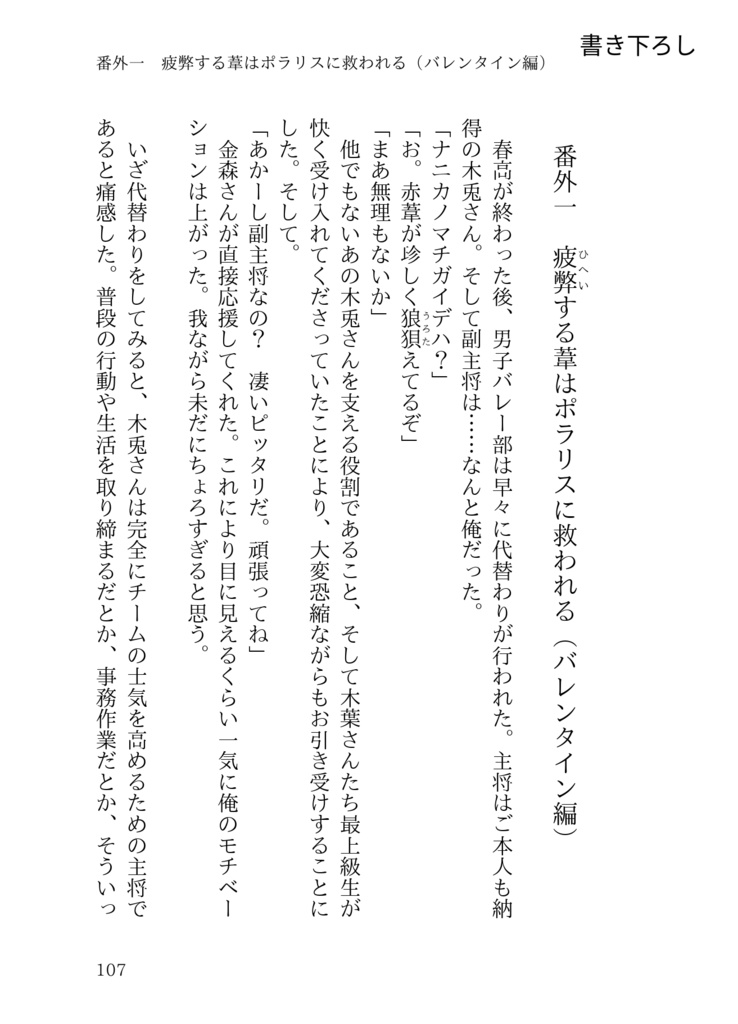 書き下ろし
番外一　疲弊する葦はポラリスに救われる（バレンタイン編）
番外一　疲弊する葦はポラリスに救われる（バレンタイン編）
ひへい
春高が終わった後、男子バレー部は早々に代替わりが行われた。主将はご本人も納
得の木兎さん。そして副主将は……なんと俺だった。
「ナニカノマチガイデハ？」
「お。赤葦が珍しく狼狽えてるぞ」
うろた
「まあ無理もないか」
他でもないあの木兎さんを支える役割であること、そして木葉さんたち最上級生が
快く受け入れてくださっていたことにより、大変恐縮ながらもお引き受けすることに
した。そして。
「あかーし副主将なの？　凄いピッタリだ。頑張ってね」
金森さんが直接応援してくれた。これにより目に見えるくらい一気に俺のモチベー
ションは上がった。我ながら未だにちょろすぎると思う。
いざ代替わりをしてみると、木兎さんは完全にチームの士気を高めるための主将で
あると痛感した。普段の行動や生活を取り締まるだとか、事務作業だとか、そういっ
107